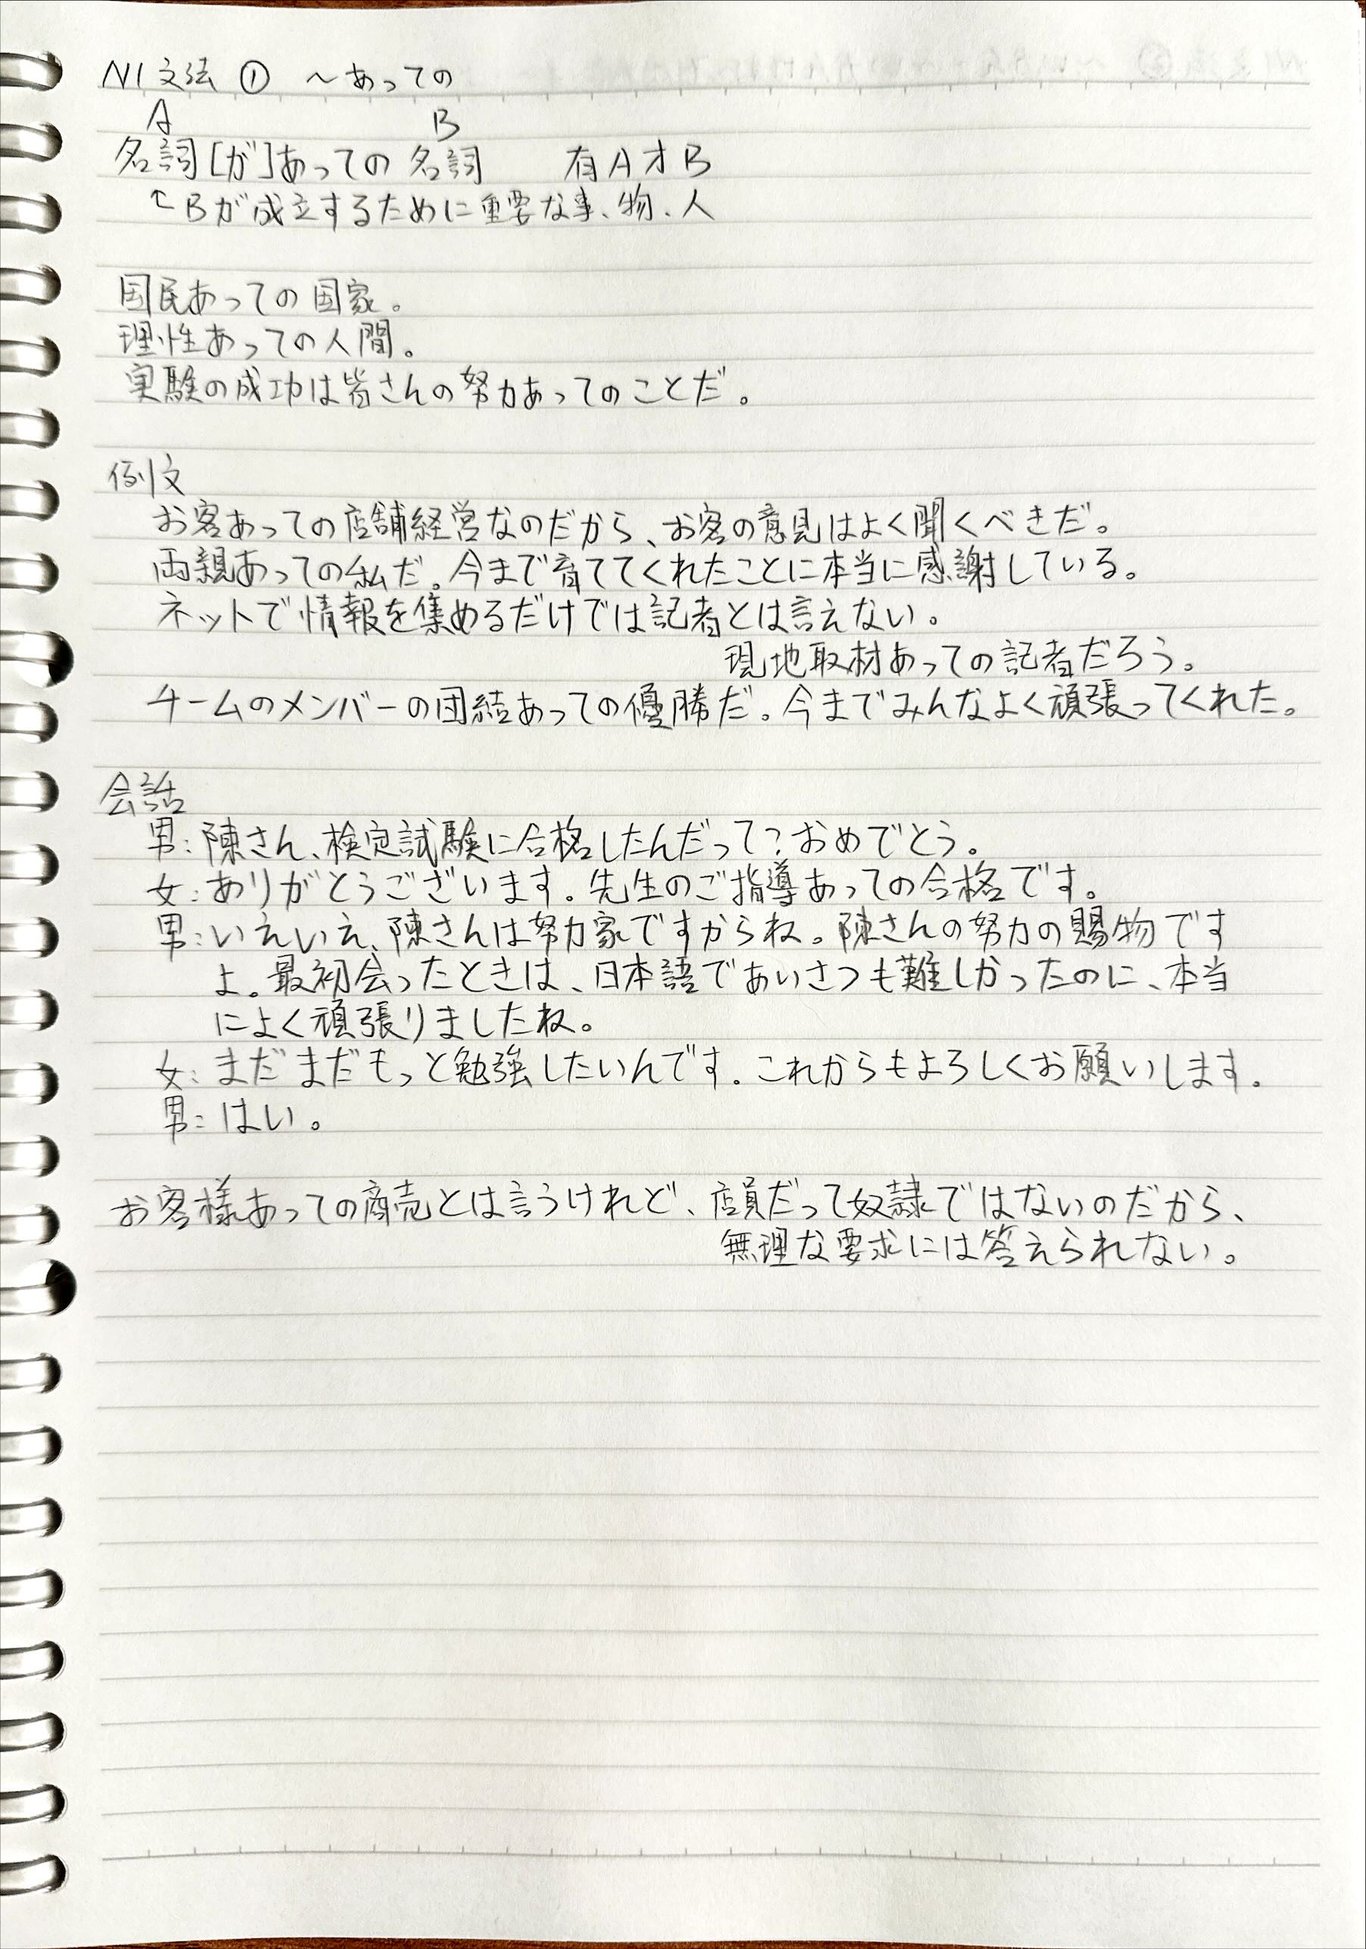 N1文法 ① ～あっての
A B
名詞[が]あっての 名詞 有A才B
↑Bが成立するために重要な事、物、人
国民あっての国家。
理性あっての人間。
実験の成功は皆さんの努力あってのことだ。
例文
お客あっての店舗経営なのだから、お客の意見はよく聞くべきだ。
両親あっての私だ。今まで育ててくれたことに本当に感謝している。
ネットで情報を集めるだけでは記者とは言えない。
現地取材あっての記者だろう。
チームのメンバーの団結あっての優勝だ。今までみんなよく頑張ってくれた。
会話
男:陳さん、検定試験に合格したんだって?おめでとう。
女:ありがとうございます。先生のご指導あっての合格です。
男:いえいえ、陳さんは努力家ですからね。陳さんの努力の賜物です
よ。最初会ったときは、日本語であいさつも難しかったのに、本当
によく頑張りましたね。
女:まだまだもっと勉強したいんです。これからもよろしくお願いします。
男:はい。
お客様あっての商売とは言うけれど、店員だって奴隷ではないのだから、
無理な要求には答えられない。